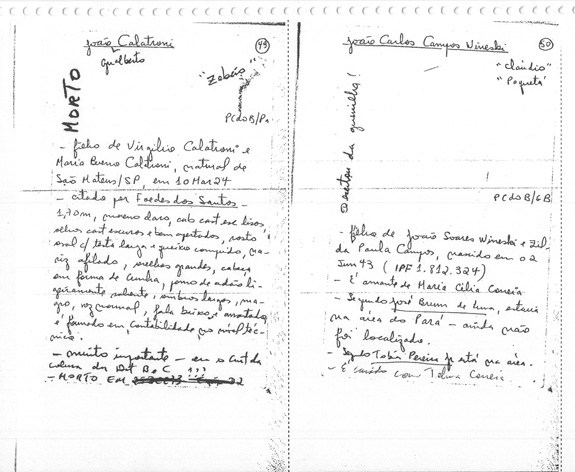 João Calatroni
Gualberto
49
"Zebão"
MORTO
PCdoB/Pa
- filho de Virgílio Calatroni e
Maria Bueno Caltroni, natural de
São Mateus/SP, em 10 Mar 24
- citado por Faedes dos Santos -
1,70m, moreno claro, cab cast esc lisos,
olhos cast escuros e bem apertados, rosto
oval c/ testa larga e queixo comprido, na-
riz afilado, orelhas grandes, cabeça
em forma de cunha, pomo de adão li-
geiramente saliente, ombros largos, ma-
gro, voz normal, fala baixo e
é formado em contabilidade no nível téc-
nico.
- muito importante - era o Cmt da
coluna do Dst B e C ???
- MORTO EM
João Carlos Campos Wisneski
50
"Claudio"
"Paquetá"
desertou da guerrilha!
PCdoB/GB
- filho de João Soares Wisneski e Zil-
da Paula Campos, nascido em 02
Jun 43 (IPF 1.812.324)
- É amante de Maria Célia Correia
- Segundo José Bruno de Lima, estaria
na área do Pará - ainda não
foi localizado.
- Segdo Tobias Pereira Jr está na área.
- É casado com Telma Correia